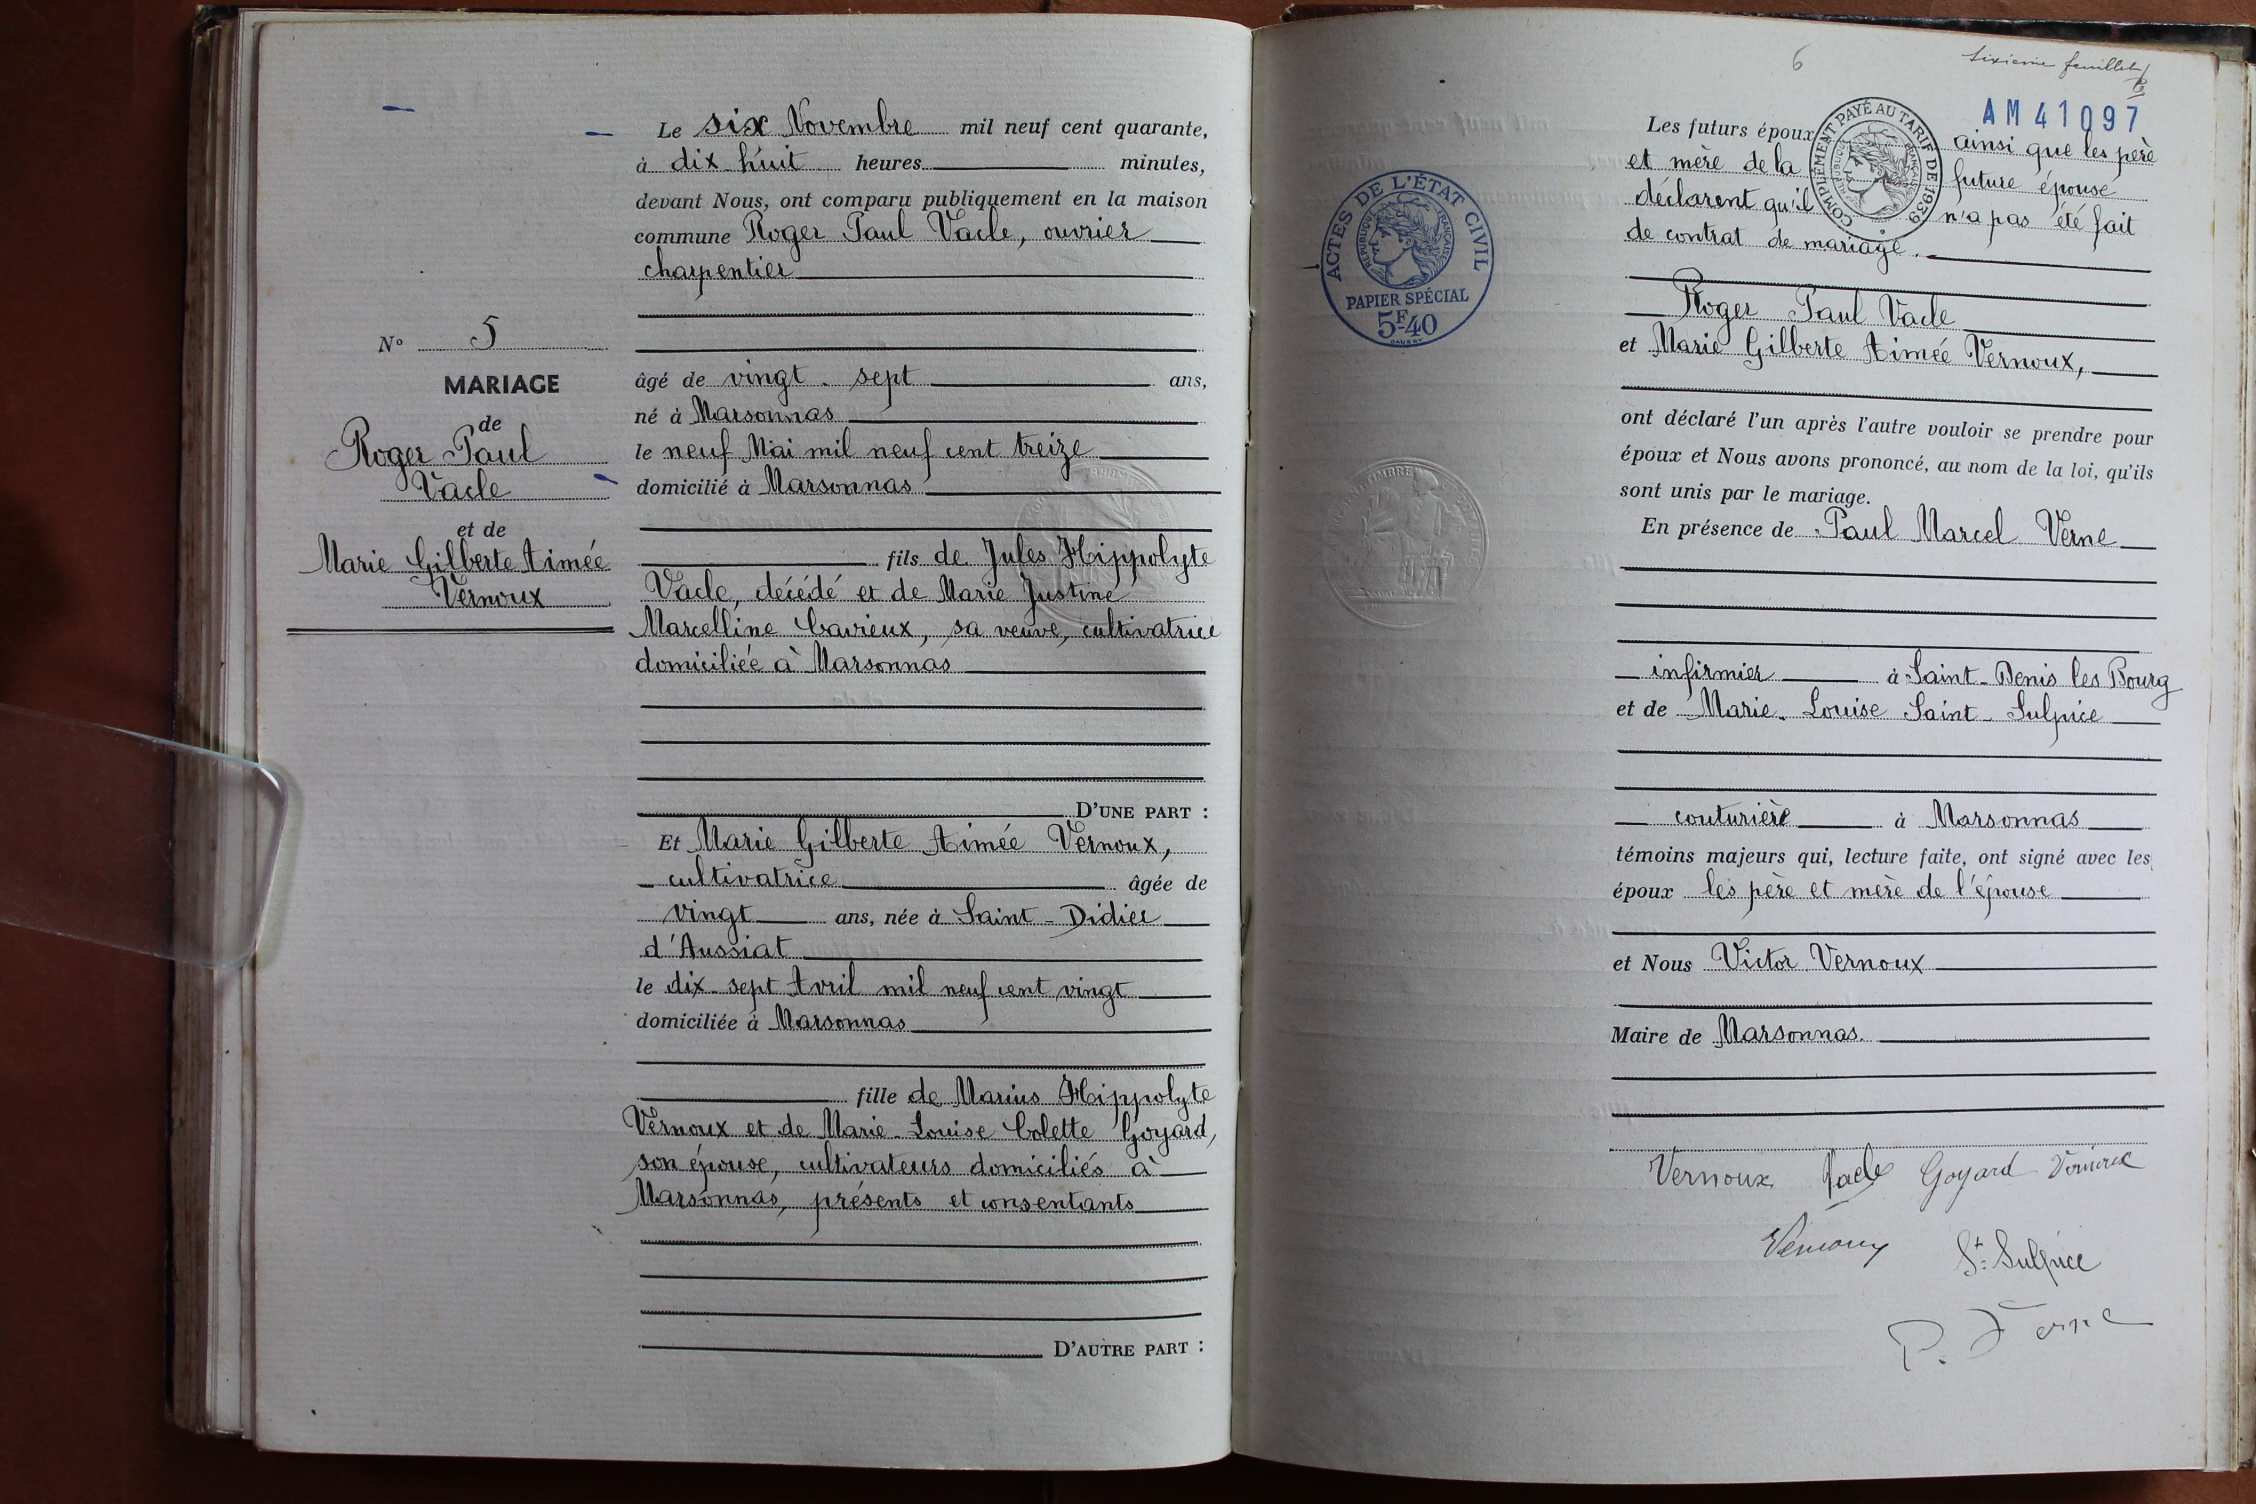 Le six Novembre mil neuf cent quarante,
à dix-huit heures minutes,
devant Nous, ont comparu publiquement en la maison
commune Roger Paul Vacle, ouvrier
charpentier
N° 5
MARIAGE
de
Roger Paul
Vacle
et de
Marie Gilberte Aimée
Vernoux
âgé de vingt-sept ans,
né à Marsonnas
le neuf Mai mil neuf cent treize
domicilié à Marsonnas
fils de Jules Hippolyte
Vacle, décédé et de Marie Justine
Marcelline Cavieux, sa veuve, cultivatrice
domiciliée à Marsonnas
D'UNE PART :
Et Marie Gilberte Aimée Vernoux,
cultivatrice âgée de
vingt ans, née à Saint-Didier
d'Aussiat
le dix-sept Avril mil neuf cent vingt
domiciliée à Marsonnas
fille de Marius Hippolyte
Vernoux et de Marie-Louise Colette Goyard,
son épouse, cultivateurs domiciliés à
Marsonnas, présents et consentants
D'AUTRE PART :
6
sixième feuillet
AM41097
COMPLÉMENT PAYÉ AU TARIF DE 1939
RÉPUBLIQUE FRANÇAISE
ACTES DE L'ÉTAT CIVIL
RÉPUBLIQUE FRANÇAISE
PAPIER SPÉCIAL
5F-40
Les futurs époux ainsi que les père
et mère de la future épouse
déclarent qu'il n'a pas été fait
de contrat de mariage.
Roger Paul Vacle
et Marie Gilberte Aimée Vernoux,
ont déclaré l'un après l'autre vouloir se prendre pour
époux et Nous avons prononcé, au nom de la loi, qu'ils
sont unis par le mariage.
En présence de Paul Marcel Verne
infirmier à Saint-Denis les Bourg
et de Marie-Louise Saint-Sulpice
couturière à Marsonnas
témoins majeurs qui, lecture faite, ont signé avec les
époux les père et mère de l'épouse
et Nous Victor Vernoux
Maire de Marsonnas.
Vernoux Vacle Goyard Vernoux
Vernoux
St Sulpice
P. Verne